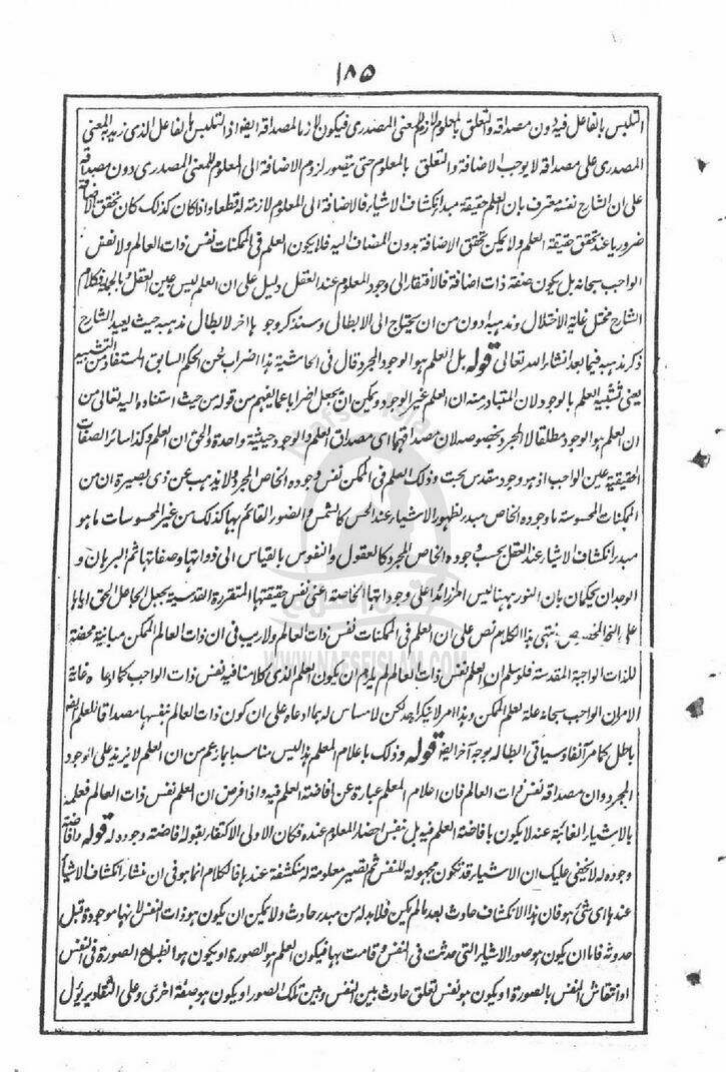 ١٨٥
التلبس بالفاعل فيه دون مصداقه والتعلق بالمعلوم لازم للمعنى المصدرى فيكون لازما لمصداقه ايضا اذ التلبس بالفاعل الذى زيد به المعنى
المصدرى على مصداقه لا يوجب الاضافة والتعلق بالمعلوم حتى يتصور لزوم الاضافة الى المعلوم للمعنى المصدرى دون مصداقه
على ان الشارح نفسه معترف بان العلم حقيقة مبدأ انكشاف الاشياء فالاضافة الى المعلوم لازمة له قطعا واذا كان كذلك كان تحقق الاضافة
ضروريا عند تحقق حقيقة العلم ولا يمكن تحقق الاضافة بدون المضاف اليه فلا يكون العلم فى الممكنات نفس ذات العالم ولا نفس
الواجب سبحانه بل يكون صفة ذات اضافة فالافتقار الى وجود المعلوم عند العقل دليل على ان العلم ليس عين العقل وبالجملة فكلام
الشارح مختل غاية الاختلال ومذهبه ادون من ان يحتاج الى الابطال وسنذكر وجوها اخر لابطال مذهبه حيث يعيد الشارح
ذكر مذهبه فيما بعد انشاء الله تعالى قوله بل العلم هو الوجود المجرد قال فى الحاشية هذا اضراب عن الحكم السابق المستفاد من التشبيه
يعنى تشبيه العلم بالوجود لان المتبادر منه ان العلم غير الوجود ويمكن ان يجعل اضرابا عما يفهم من قوله من حيث استناده اليه تعالى من
ان العلم هو الوجود مطلقا لا المجرد بخصوصه لان مصداقهما اى مصداق العلم والوجود حيثية واحدة والحق ان العلم وكذا سائر الصفات
الحقيقية عين الواجب اذ هو وجود مقدس بحت وذلك العلم فى الممكن نفس وجوده الخاص المجرد ولا يذهب عن ذى بصيرة ان من
الممكنات المحسوسة ما وجوده الخاص مبدء لظهور الاشياء عند الحس كالشمس والضوء القائم بها كذلك من غير المحسوسات ما هو
مبدء انكشاف الاشياء عند العقل بحسب وجوده الخاص المجرد كالعقول والنفوس بالقياس الى ذواتها وصفاتها ثم البرهان و
الوجدان يحكمان بان النور ههنا ليس امرا زائدا على وجوداتها الخاصة اعنى نفس حقيقتها المتقررة القدسية بجعل الجاعل الحق اياها
على النحو المخصوص انتهى هذا الكلام نص على ان العلم فى الممكنات نفس ذات العالم ولا ريب فى ان ذات العالم الممكن مباينة محضة
للذات الواجبة المقدسة فلو سلم ان العلم نفس ذات العالم لم يلزم ان يكون العلم الذى كلامنا فيه نفس ذات الواجب كما ادعاه غاية
الامر ان الواجب سبحانه علة لعلم الممكن وهذا امر لا ينكره احد لكن لا مساس له بما ادعاه على ان كون ذات العالم بنفسها مصداقا للعلم ايضا
باطل كما مر آنفا وسياتى ابطاله بوجه آخر ايضا قوله وذلك باعلام المعلم هذا ليس مناسبا بما زعم من ان العلم لا يزيد على الوجود
المجرد وان مصداقه نفس ذات العالم فان اعلام المعلم عبارة عن افاضة العلم فيه واذا فرض ان العلم نفس ذات العالم فعلمه
بالاشياء الغائبة عنه لا يكون بافاضة العلم فيه بل نفس احضار المعلوم عنده فكان الاولى الاكتفاء بقوله افاضته وجوده له قوله وافاضة
وجوده له لا يخفى عليك ان الاشياء قد تكون مجهولة للنفس ثم تصير معلومة له منكشفة عندها فالكلام انما هو فى ان منشأ انكشاف الاشياء
عندها اى شئ هو فان هذا الانكشاف حادث بعد ما لم يكن فلا بد له من مبدء حادث ولا يمكن ان يكون هو ذات النفس لانها موجودة قبل
حدوثه فاما ان يكون هو صور الاشياء التى حدثت فى النفس وقامت بها فيكون العلم هو الصورة او يكون هو انطباع الصورة فى النفس
او انتقاش النفس بالصورة او يكون هو نفس تعلق حادث بين النفس وبين تلك الصور او يكون هو صفة اخرى وعلى التقادير يؤل
WWW.NAFSEISLAM.COM